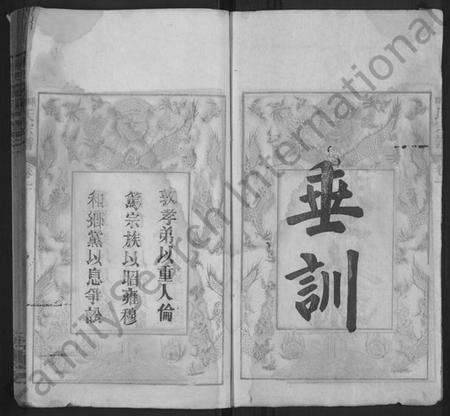 垂訓
敦孝弟以重人倫
篤宗族以昭雍穆
和鄉黨以息爭訟
FamilySearch International